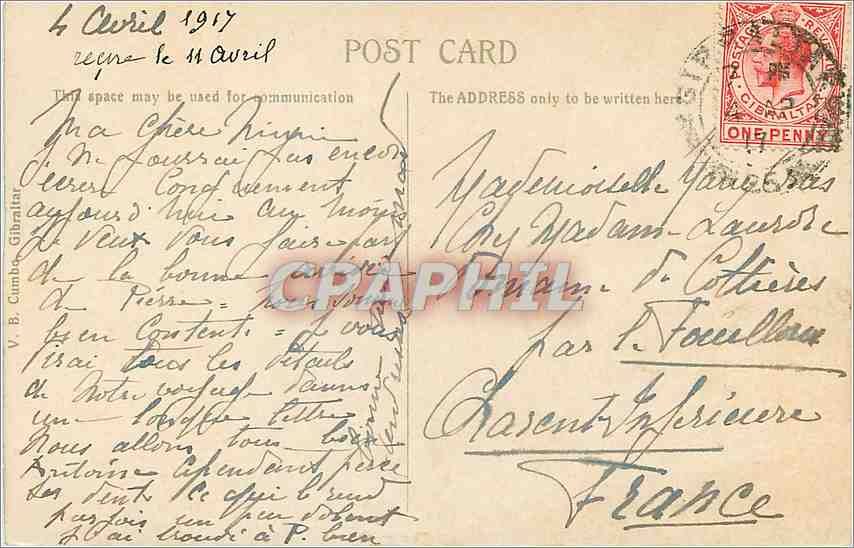 4 Avril 1917
reçue le 11 avril
POST CARD
This space may be used for communication
The ADDRESS only to be written here
V. B. Cumbo, Gibraltar
POSTAGE & REVENUE
GIBRALTAR
ONE PENNY
Ma chère
Je ne pourrai pas encore
écrire longuement
aujourd'hui au moins
Je veux vous faire part
de la bonne arrivée
de Pierre = nous sommes
bien contents = je vous
dirai tous les détails
de notre voyage dans
une longue lettre
Nous allons tous bien
Antoine cependant perce
ses dents ce qui le rend
parfois un peu dolent
J'ai trouvé à P. bien
Mademoiselle
Chez Madame
Domaine de Cottières
par le Fouilloux
Charent-Inférieure
France
CPAPHIL